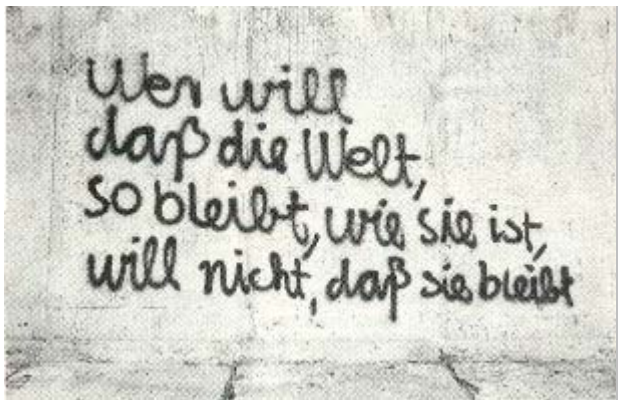 Wer will
daß die Welt,
so bleibt, wie sie ist,
will nicht, daß sie bleibt